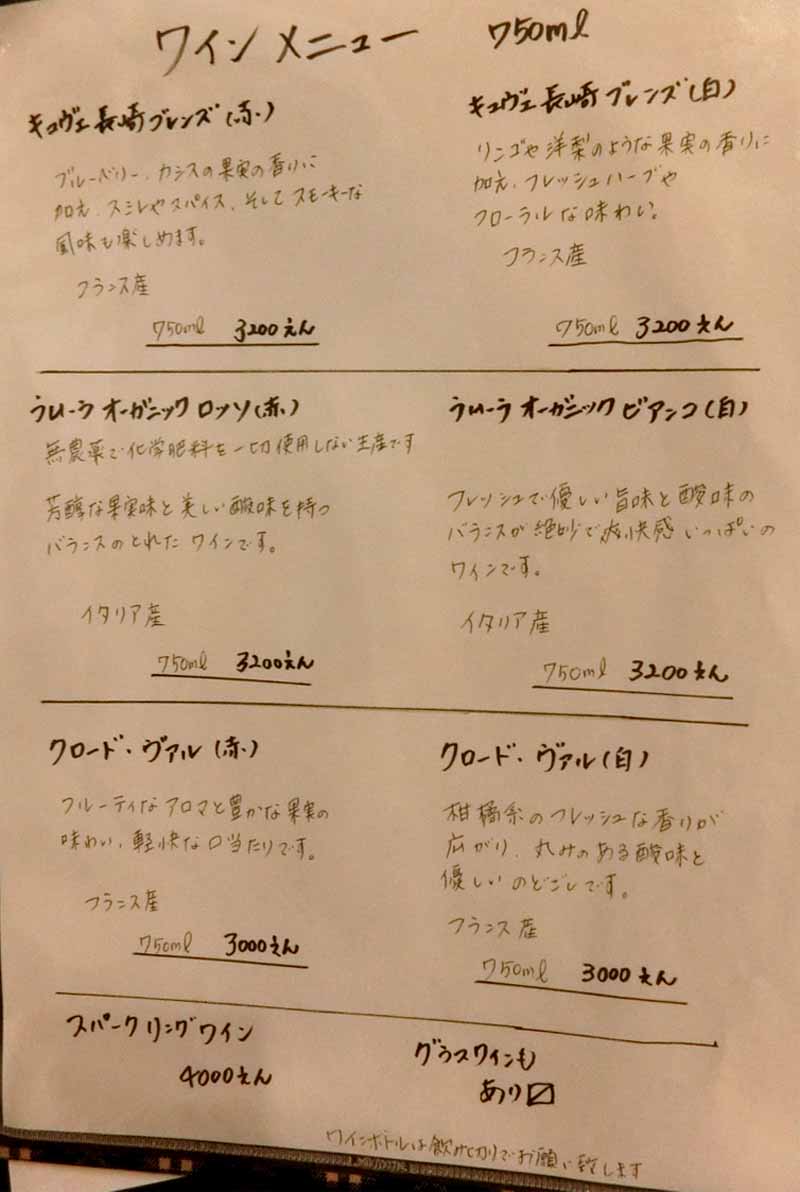 ワインメニュー 750ml
キュヴェ長崎ブレンズ(赤)
ブルーベリー、カシスの果実の香りに
加え、スミレやスパイス、そしてスモーキーな
風味も楽しめます。
フランス産
750ml 3200えん
キュヴェ長崎ブレンズ(白)
リンゴや洋梨のような果実の香りに
加え、フレッシュハーブや
フローラルな味わい。
フランス産
750ml 3200えん
うぃーう オーガニック ロッソ(赤)
無農薬で化学肥料を一切使用しない生産です
芳醇な果実味と美しい酸味を持つ
バランスのとれたワインです。
イタリア産
750ml 3200えん
うぃーう オーガニック ビアンコ(白)
フレッシュで優しい旨味と酸味の
バランスが絶妙で爽快感いっぱいの
ワインです。
イタリア産
750ml 3200えん
クロード・ヴァル(赤)
フルーティなアロマと豊かな果実の
味わい、軽快な口当たりです。
フランス産
750ml 3000えん
クロード・ヴァル(白)
柑橘系のフレッシュな香りが
広がり、丸みのある酸味と
優しいのどごしです。
フランス産
750ml 3000えん
スパークリングワイン
4000えん
グラスワインも
あり〼
ワインボトルは飲み切りでお願い致します